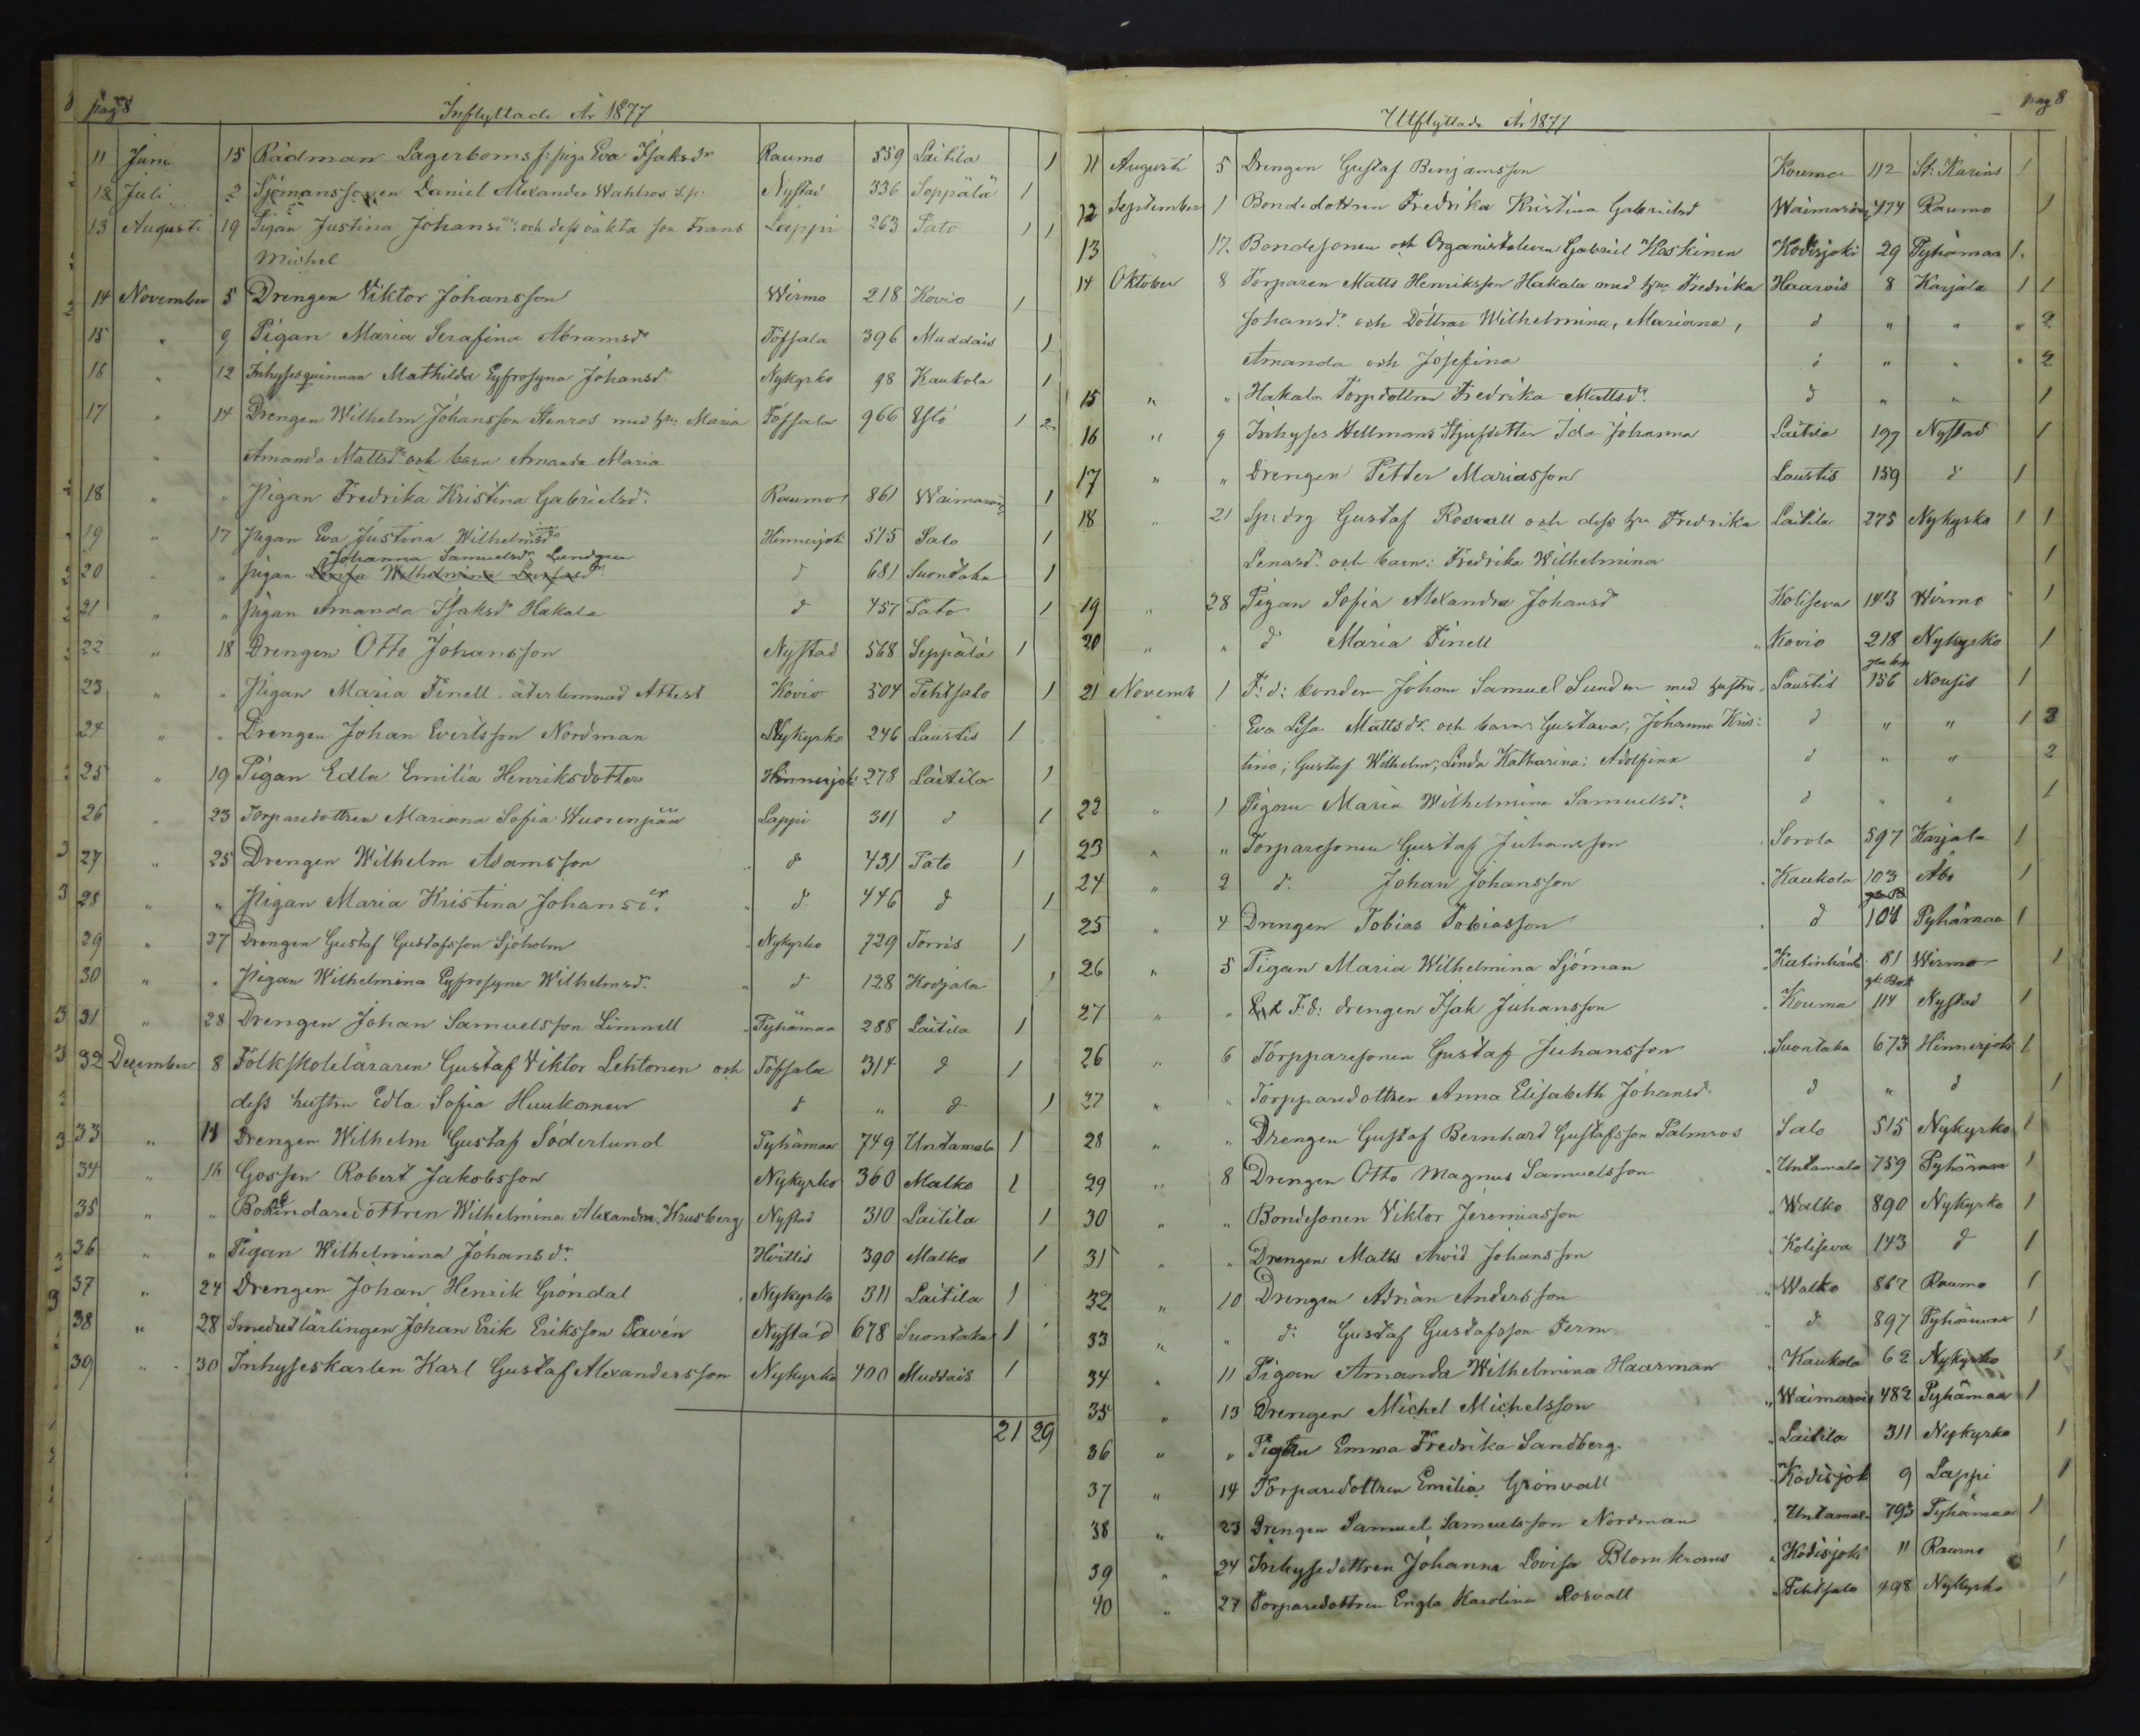 pag 8
Inflyttade År 1877
11 Juni 15 Rådman Lagerboms f: piga Eva Isaksdr Raumo 559 Laitila 1
12 Juli 2 Sjömanssonen Daniel Alexander Wahlroos Nystad 336 Seppälä 1
13 Augusti 19 Pigan Justina Johansdr och dess oäkta son Frans Lappi 263 Pato 1 1
Michel
14 November 5 Drengen Viktor Johansson Wirmo 218 Kovio 1
15 " 9 Pigan Maria Serafina Abramsdr Töfsala 396 Muddais 1
16 " 12 Inhysesquinnan Mathilda Eyfrosyna Johansdr Nykyrko 98 Kaukola 1
17 " 14 Drengen Wilhelm Johansson Stenros med hu: Maria Töfsala 966 1 2
Amanda Mattsdr och barn Amanda Maria
18 " " Pigan Fredrika Kristina Gabrielsdr Raumo 861 Waimaro 1
19 " 17 Pigan Eva Justina Wilhelmsdr Hinnerjoki 515 Salo 1
Johanna Samuelsdr Lundgren
20 " " Pigan d 681 Suontaka 1
21 " " Pigan Amanda Isaksdr Hakala d 457 Pato 1
22 " 18 Drengen Otto Johansson Nystad 568 Seppälä 1
23 " " Pigan Maria Finell återlemnad Attest Kovio 504 Tehtsalo 1
24 " " Drengen Johan Evertsson Nordman Nykyrko 246 Laustis 1
25 " 19 Pigan Edla Emilia Henriksdotter Hinnerjoki 278 Laitila 1
26 " 23 Torparedottren Mariana Sofia Wuorenpää Lappi 311 d 1
27 " 25 Drengen Wilhelm Adamsson d 431 Pato 1
28 " " Pigan Maria Kristina Johansdr d 446 d 1
29 " 27 Drengen Gustaf Gustafsson Sjöholm Nykyrko 729 Torris 1
30 " " Pigan Wilhelmina Eyfrosyna Wilhelmsdr d 128 Kodjala 1
31 " 28 Drengen Johan Samuelsson Limnell Pyhämaa 288 Laitila 1
32 December 8 Folkskoleläraren Gustaf Viktor Lehtonen och Töfsala 314 d 1
dess hustru Edla Sofia Huukanen d " d 1
33 " 11 Drengen Wilhelm Gustaf Söderlund Pyhämaa 749 Untamala 1
34 " 16 Gossen Robert Jakobsson Nykyrko 360 Malko 1
35 " " Bokbindaredottren Wilhelmina Alexandra Wrusberg Nystad 310 Laitila 1
36 " " Pigan Wilhelmina Johansdr Hvittis 390 Malko 1
37 " 24 Drengen Johan Henrik Gröndal Nykyrko 311 Laitila 1
38 " 28 Smedslärlingen Johan Erik Eriksson Pavén Nystad 678 Suontaka 1
39 " 30 Inhyseskarlen Karl Gustaf Alexandersson Nykyrko 400 Muddais 1
21 29
pag 8
Utflyttade År 1877
11 Augusti 5 Drengen Gustaf Benjamsson Kouma 112 St: Karins 1
12 September 1 Bondedottren Fredrika Kristina Gabrielsd Waimaro 474 Raumo 1
13 " 17 Bondesonen och Organisteleven Gabriel Koskinen Kodisjoki 29 Pyhämaa 1
14 Oktober 8 Torparen Matts Henriksson Hakala med hu Fredrika Haarois 8 Karjala 1 1
Johansdr och Döttrar Wilhelmina, Mariana, d " " " 2
Amanda och Josefina d " " " 2
15 " " Hakala Torpdottren Fredrika Mattsdr d " " 1
16 " 9 Inhyses Hellmans Styfdotter Ida Johanna Laitila 199 Nystad 1
17 " " Drengen Petter Mariasson Laustis 159 d 1
18 " 21 Sp: drg Gustaf Rosvall och dess hu Fredrika Laitila 275 Nykyrko 1 1
Lenasdr och barn: Fredrika Wilhelmina 1
19 " 28 Pigan Sofia Alexandra Johansdr Koliseva 143 Wirmo 1
20 " " d Maria Finell Kovio 218 Nykyrko 1
21 Novemb 1 F: d: bonden Johan Samuel Sunden med hustru Laustis 156 Nousis 1
Eva Lisa Mattsdr och barn: Gustava, Johanna Kris: d " " 1 3
tina; Gustaf Wilhelm; Linda Katharina: Adolfina d " " 2
22 " 1 Pigan Maria Wilhelmina Samuelsdr d " " 1
23 " " Torparesonen Gustaf Juhansson Sorola 597 Karjala 1
24 " 2 d: Johan Johansson Kaukola 103 Åbo 1
25 " 4 Drengen Tobias Tobiasson d 104 Pyhämaa 1
26 " 5 Pigan Maria Wilhelmina Sjöman Katinhänt 81 Wirmo 1
27 " " F: d: drengen Isak Juhansson Kouma 114 Nystad 1
26 " 6 Torpparesonen Gustaf Juhansson Suontaka 673 Hinnerjoki 1
27 " " Torpparedottren Anna Elisabeth Johansdr d " d 1
28 " " Drengen Gustaf Bernhard Gustafsson Palmros Salo 515 Nykyrko 1
29 " 8 Drengen Otto Magnus Samuelsson Untamala 759 Pyhämaa 1
30 " " Bondesonen Viktor Jeremiasson Walko 890 Nykyrko 1
31 " " Drengen Matts Arvid Johansson Koliseva 143 d 1
32 " 10 Drengen Adrian Andersson Walko 867 Raumo 1
33 " " d: Gustaf Gustafsson Term d 897 Pyhämaa 1
34 " 11 Pigan Amanda Wilhelmina Haarman Kaukola 62 Nykyrko 1
35 " 13 Drengen Michel Michelsson Waimaro 482 Pyhämaa 1
36 " " Pigan Emma Fredrika Sandberg Laitila 311 Nykyrko 1
37 " 14 Torparedottren Emilia Grönvall Kodisjok 9 Lappi 1
38 " 23 Drengen Samuel Samuelsson Nordman Untamal 793 Pyhämaa 1
39 " 24 Inhysedottren Johanna Lovisa Blomkroms Kodisjoki 11 Raumo 1
40 " 27 Torparedottren Engla Karolina Rosvall Tehtsalo 498 Nykyrko 1